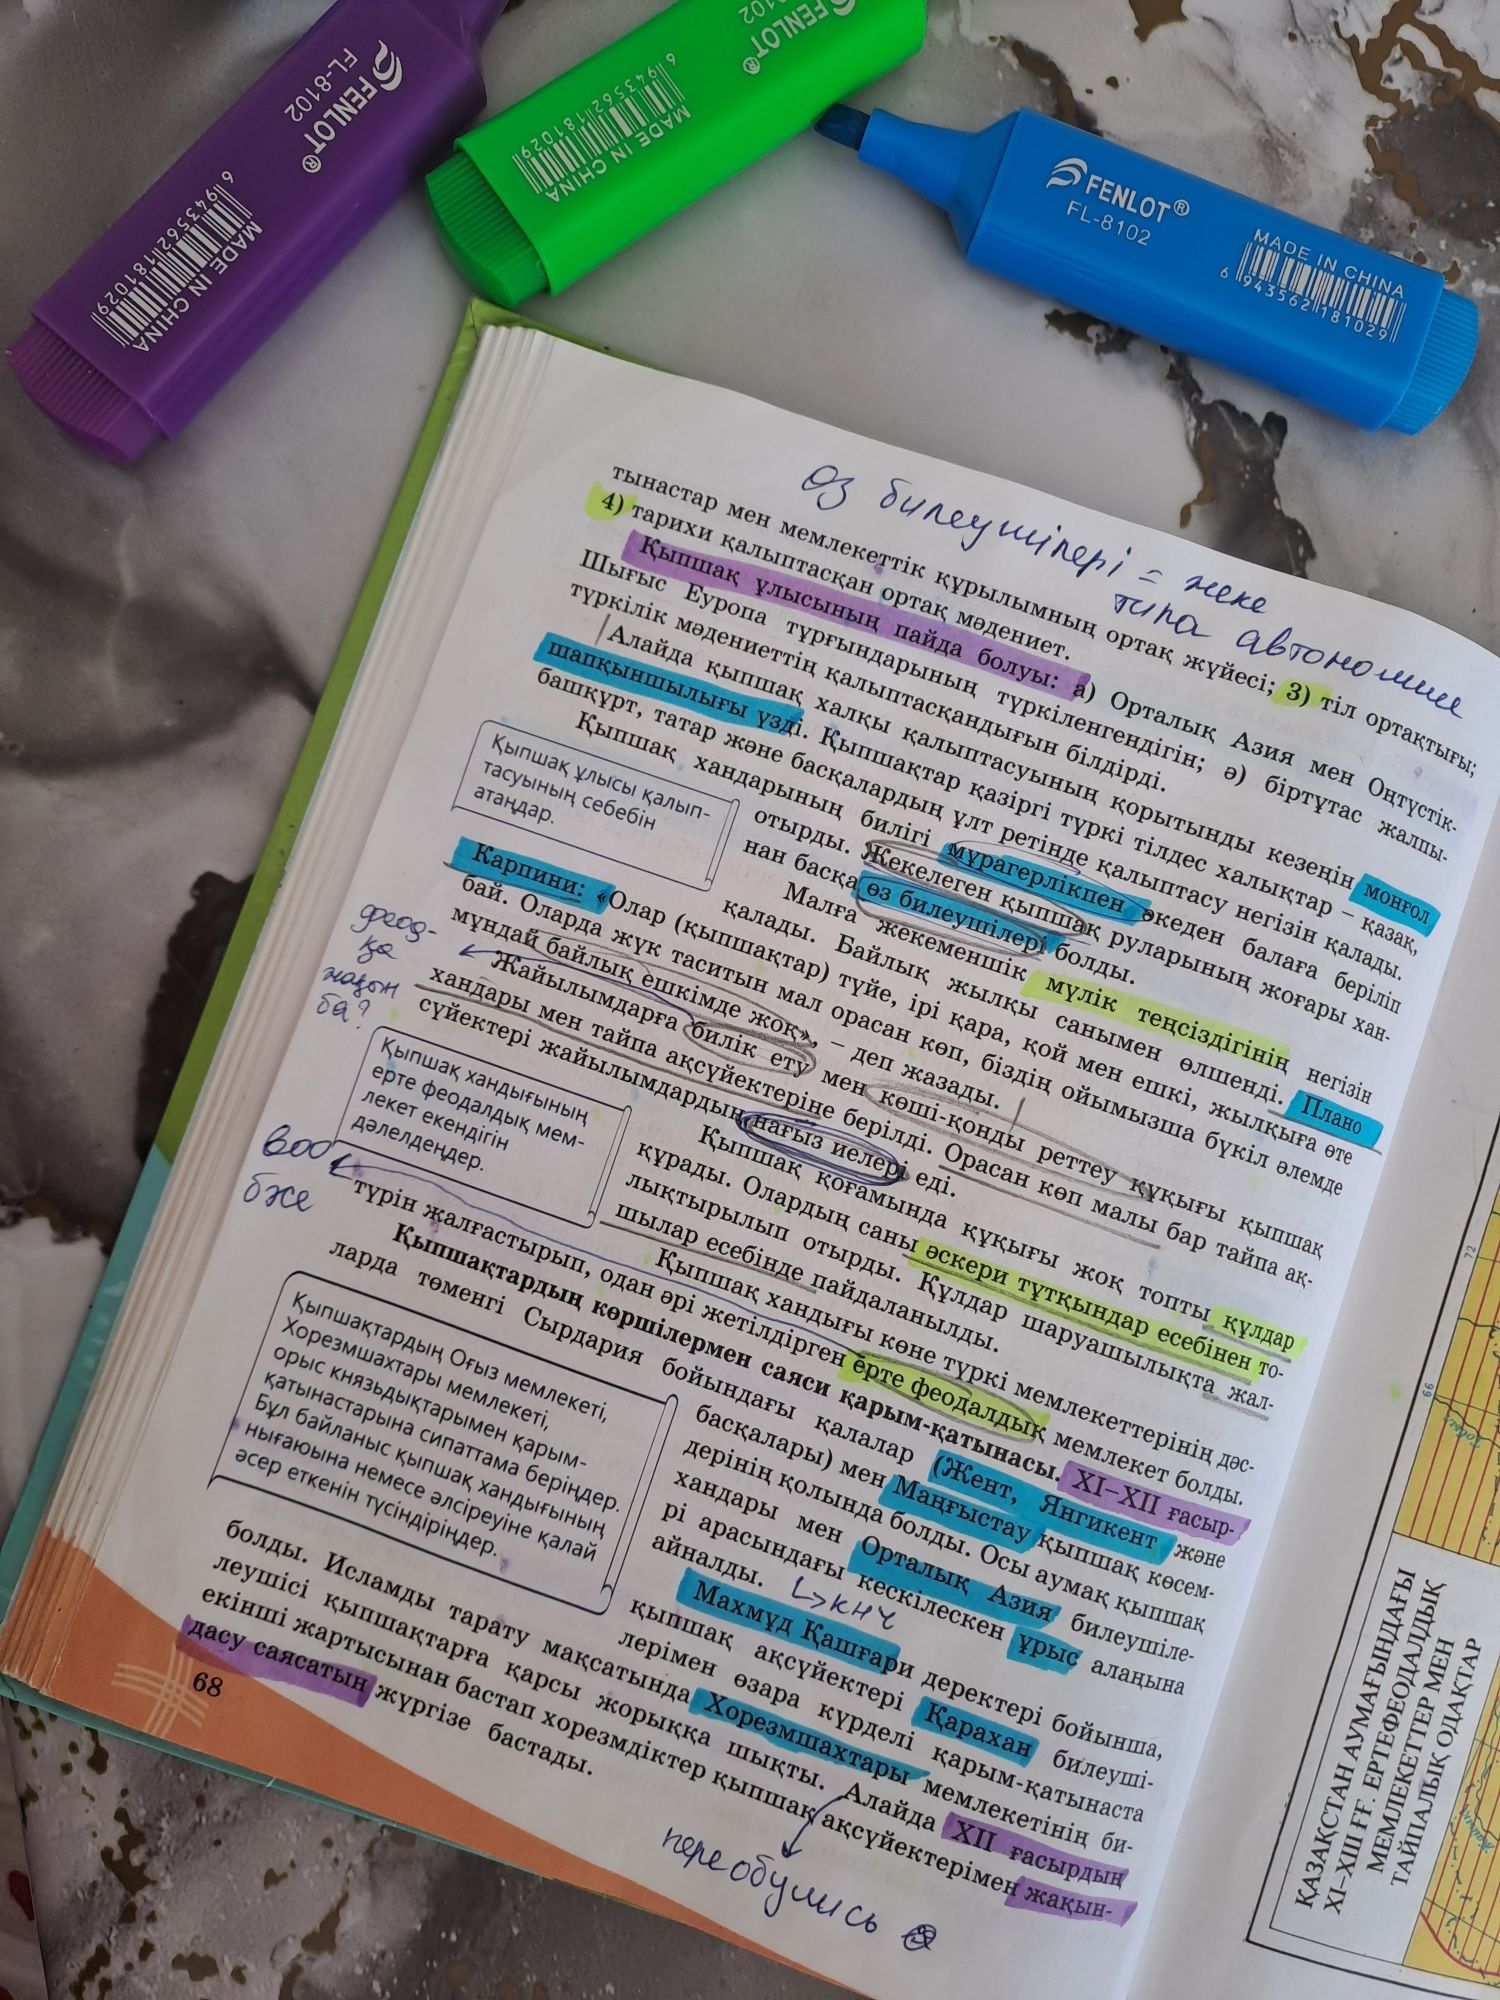 FENLOT®
FL-8102
MADE IN CHINA
6 943562 181029
8102
FENLOT®
MADE IN CHINA
6 943562 181029
FENLOT®
FL-8102
MADE IN CHINA
6 943562 181029
өз билеушілері = жеке
типа автономии
тынастар мен мемлекеттік құрылымның ортақ жүйесі; 3) тіл ортақтығы;
4) тарихи қалыптасқан ортақ мәдениет.
Қыпшақ ұлысының пайда болуы: а) Орталық Азия мен Оңтүстік-
Шығыс Еуропа тұрғындарының түркіленгендігін; ә) біртұтас жалпы-
түркілік мәдениеттің қалыптасқандығын білдірді.
Алайда қыпшақ халқы қалыптасуының қорытынды кезеңін моңғол
шапқыншылығы үзді. Қыпшақтар қазіргі түркі тілдес халықтар – қазақ,
башқұрт, татар және басқалардың ұлт ретінде қалыптасу негізін қалады.
Қыпшақ хандарының билігі мұрагерлікпен әкеден балаға беріліп
отырды. Жекелеген қыпшақ руларының жоғары хан-
нан басқа өз билеушілері болды.
Қыпшақ ұлысы қалып-
тасуының себебін
атаңдар.
Малға жекеменшік мүлік теңсіздігінің негізін
қалады. Байлық жылқы санымен өлшенді. Плано
Карпини: «Олар (қыпшақтар) түйе, ірі қара, қой мен ешкі, жылқыға өте
бай. Оларда жүк таситын мал орасан көп, біздің ойымызша бүкіл әлемде
мұндай байлық ешкімде жоқ», – деп жазады.
Жайылымдарға билік ету мен көші-қонды реттеу құқығы қыпшақ
хандары мен тайпа ақсүйектеріне берілді. Орасан көп малы бар тайпа ақ-
сүйектері жайылымдардың нағыз иелері еді.
феод-
қа
ба?
Қыпшақ хандығының
ерте феодалдық мем-
лекет екендігін
дәлелдеңдер.
Қыпшақ қоғамында құқығы жоқ топты құлдар
құрады. Олардың саны әскери тұтқындар есебінен то-
лықтырылып отырды. Құлдар шаруашылықта жал-
шылар есебінде пайдаланылды.
Қыпшақ хандығы көне түркі мемлекеттерінің дәс-
түрін жалғастырып, одан әрі жетілдірген ерте феодалдық мемлекет болды.
воо
бже
Қыпшақтардың көршілермен саяси қарым-қатынасы. XI–XII ғасыр-
ларда төменгі Сырдария бойындағы қалалар (Жент, Янгикент және
басқалары) мен Маңғыстау қыпшақ көсем-
дерінің қолында болды. Осы аумақ қыпшақ
хандары мен Орталық Азия билеушіле-
рі арасындағы кескілескен ұрыс алаңына
айналды.
КНЧ
Қыпшақтардың Оғыз мемлекеті,
Хорезмшахтары мемлекеті,
орыс князьдықтарымен қарым-
қатынастарына сипаттама беріңдер.
Бұл байланыс қыпшақ хандығының
нығаюына немесе әлсіреуіне қалай
әсер еткенін түсіндіріңдер.
Махмұд Қашғари деректері бойынша,
қыпшақ ақсүйектері Қарахан билеуші-
лерімен өзара күрделі қарым-қатынаста
болды. Исламды тарату мақсатында Хорезмшахтары мемлекетінің би-
леушісі қыпшақтарға қарсы жорыққа шықты. Алайда XII ғасырдың
екінші жартысынан бастап хорезмдіктер қыпшақ ақсүйектерімен жақын-
дасу саясатын жүргізе бастады.
переобулись
68
72
66
ҚАЗАҚСТАН АУМАҒЫНДАҒЫ
XI–XIII ҒҒ. ЕРТЕФЕОДАЛДЫҚ
МЕМЛЕКЕТТЕР МЕН
ТАЙПАЛЫҚ ОДАҚТАР